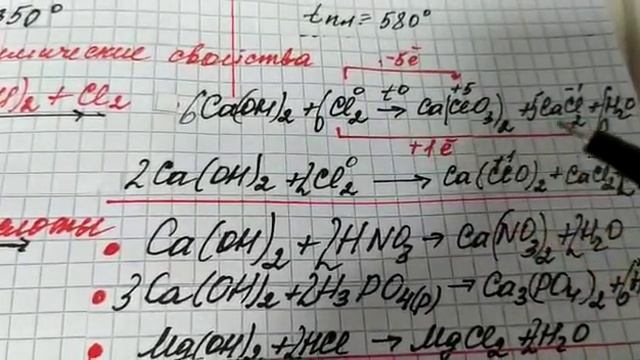 350° tпл = 580°
имические свойства
-5ē
)₂ + Cl₂ 6Ca(OH)₂ + 6Cl₂⁰ →t⁰ Ca(Cl⁺⁵O₃)₂ + 5CaCl₂⁻¹ + 6H₂O
+1ē
2Ca(OH)₂ + 2Cl₂⁰ → Ca(Cl⁺¹O)₂ + CaCl₂
лоты
Ca(OH)₂ + 2HNO₃ → Ca(NO₃)₂ + 2H₂O
3Ca(OH)₂ + 2H₃PO₄(р) → Ca₃(PO₄)₂ + 6H
Mg(OH)₂ + 2HCl → MgCl₂ + 2H₂O